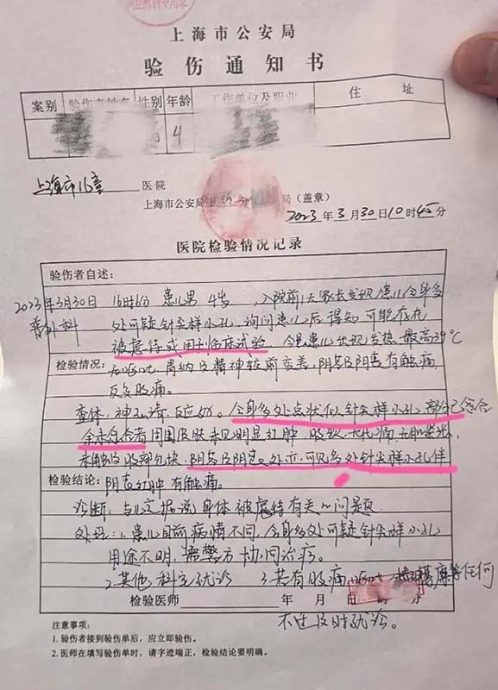 上海市公安局
验伤通知书
案别 验伤者姓名 性别 年龄 工作单位及职业 住址
4
上海市儿童 医院
上海市公安局 分 局（盖章）
2023年3月30日10时45分
医院检验情况记录
验伤者自述：
2023年3月30日 16时6分 患儿男 4岁，入院前1天家长发现患儿全身多
处可疑针尖样小孔，询问患儿后得知可能存在
被虐待或用于临床试验。今患儿出现发热 最高39℃
检验情况： 胃纳及精神较前变差，阴茎及阴囊有触痛，
反复腹痛。
查体：神志清，反应 全身多处点状似针尖样小孔，部分已愈合
余未愈合者周围皮肤未见明显红肿
未触及 包块，阴茎 可见多处针尖样小孔伴
检验结论： 阴茎红肿 有触痛。
诊断：与 身体被虐待有关的问题
处理：1、患儿目前病情不同，全身多处可疑针尖样小孔
用途不明，需警方协同治疗。
2、其他科室就诊 3、若有腹痛 等任何
检验医师 年 月 日 时
不适及时就诊。
注意事项：
1. 验伤者接到验伤单后，应立即验伤。
2. 医师在填写验伤单时，请字迹端正，检验结论要明确。